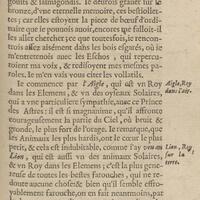 gouſts & ſaulgondis. Ie deurois grauer ſur le
bronze, d'vne eternelle memoire, ces beſtiolet-
tes; car elles eſtoyent la piece de bœuf d'ordi-
naire que ie pouuois auoir, encores ne falloit-il
les aller chercher ço que touteſois, ie rencon-
trois aſſez aiſément dans les bois eſgarés, où ie
m'entretenois auec les Echos, qui repartoit
mutuels ma voix, & rediſoyent mes meſmes pa-
roles. Ie m'en vais vous citer les volatils.
Ie commence par l'Aigle, qui eſt vn Roy
dans les Elemens, & vn des oyſeaux Solaires,
qui a vne particuliere ſympathie, auec ce Prince
des Aſtres: il eſt ſi magnanime, qu'il pourroit
courageuſement la partie du Ciel, où bruit &
gronde, le plus fort de l'orage. Ie remarque, que
les Animaux les plus hardis, ont de l'inclination,
à ceſte qualité, & à cela, indubitable comme i'ay veu au
Lion, qui eſt auſſi vn des animaux Solaires,
& vn Roy dans les Elemens; c'eſt la plus gene-
reuſe de toutes les beſtes farouches, qui ne
redoute aucune choſe & bien qu'il ſemble effro-
yablement farouche, on en fait neantmoins,
Aigle, Roy
dans l'air.
Lion, Roy
ſur la
terre.